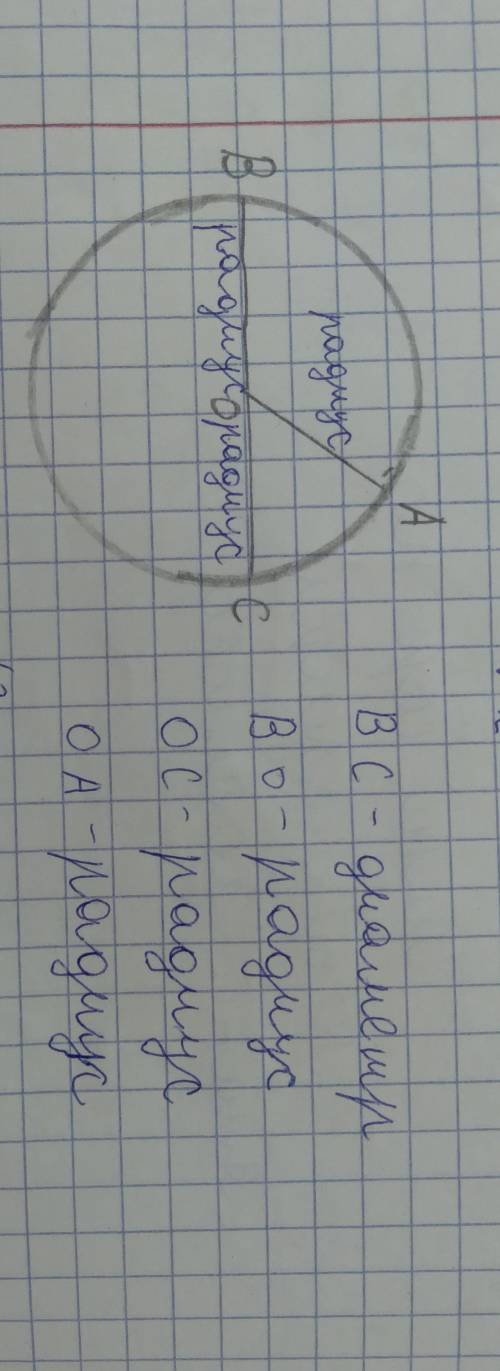 B
радиус
A
радиус О радиус
C
BC - диаметр
BO - радиус
OC - радиус
OA - радиус